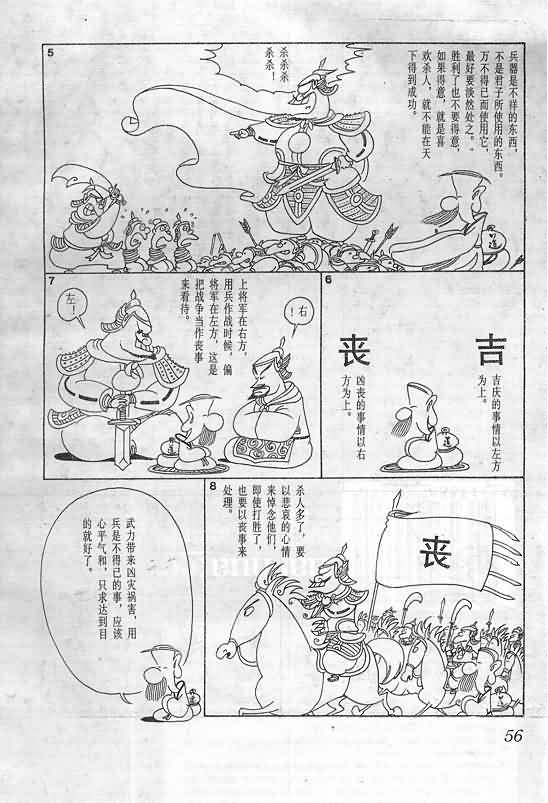 5
兵器是不祥的东西，
不是君子所使用的东西。
万不得已而使用它，
最好要淡然处之。
胜利了也不要得意，
如果得意，就是喜
欢杀人，就不能在天
下得到成功。
杀杀杀
杀杀！
道
6
吉
吉庆的事情以左方
为上。
丧
凶丧的事情以右
方为上。
道
7
上将军在右方，
用兵作战时候，偏
将军在左方，这是
把战争当作丧事
来看待。
右！
左！
道
8
杀人多了，要
以悲哀的心情
来悼念他们，
即使打胜了，
也要以丧事来
处理。
丧
武力带来凶灾祸害，用
兵是不得已的事，应该
心平气和，只求达到目
的就好了。
56